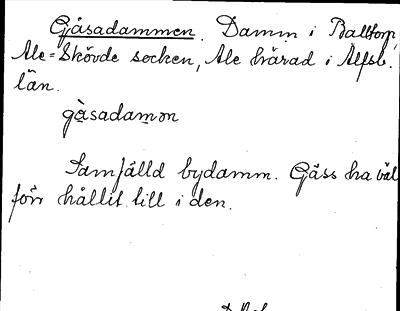 Gåsadammen. Damm i Balltorp,
Ale-Skövde socken, Ale härad i Älfsb.
län.
gåsadamon
Samfälld bydamm. Gäss ha väl
förr hållit till i den.